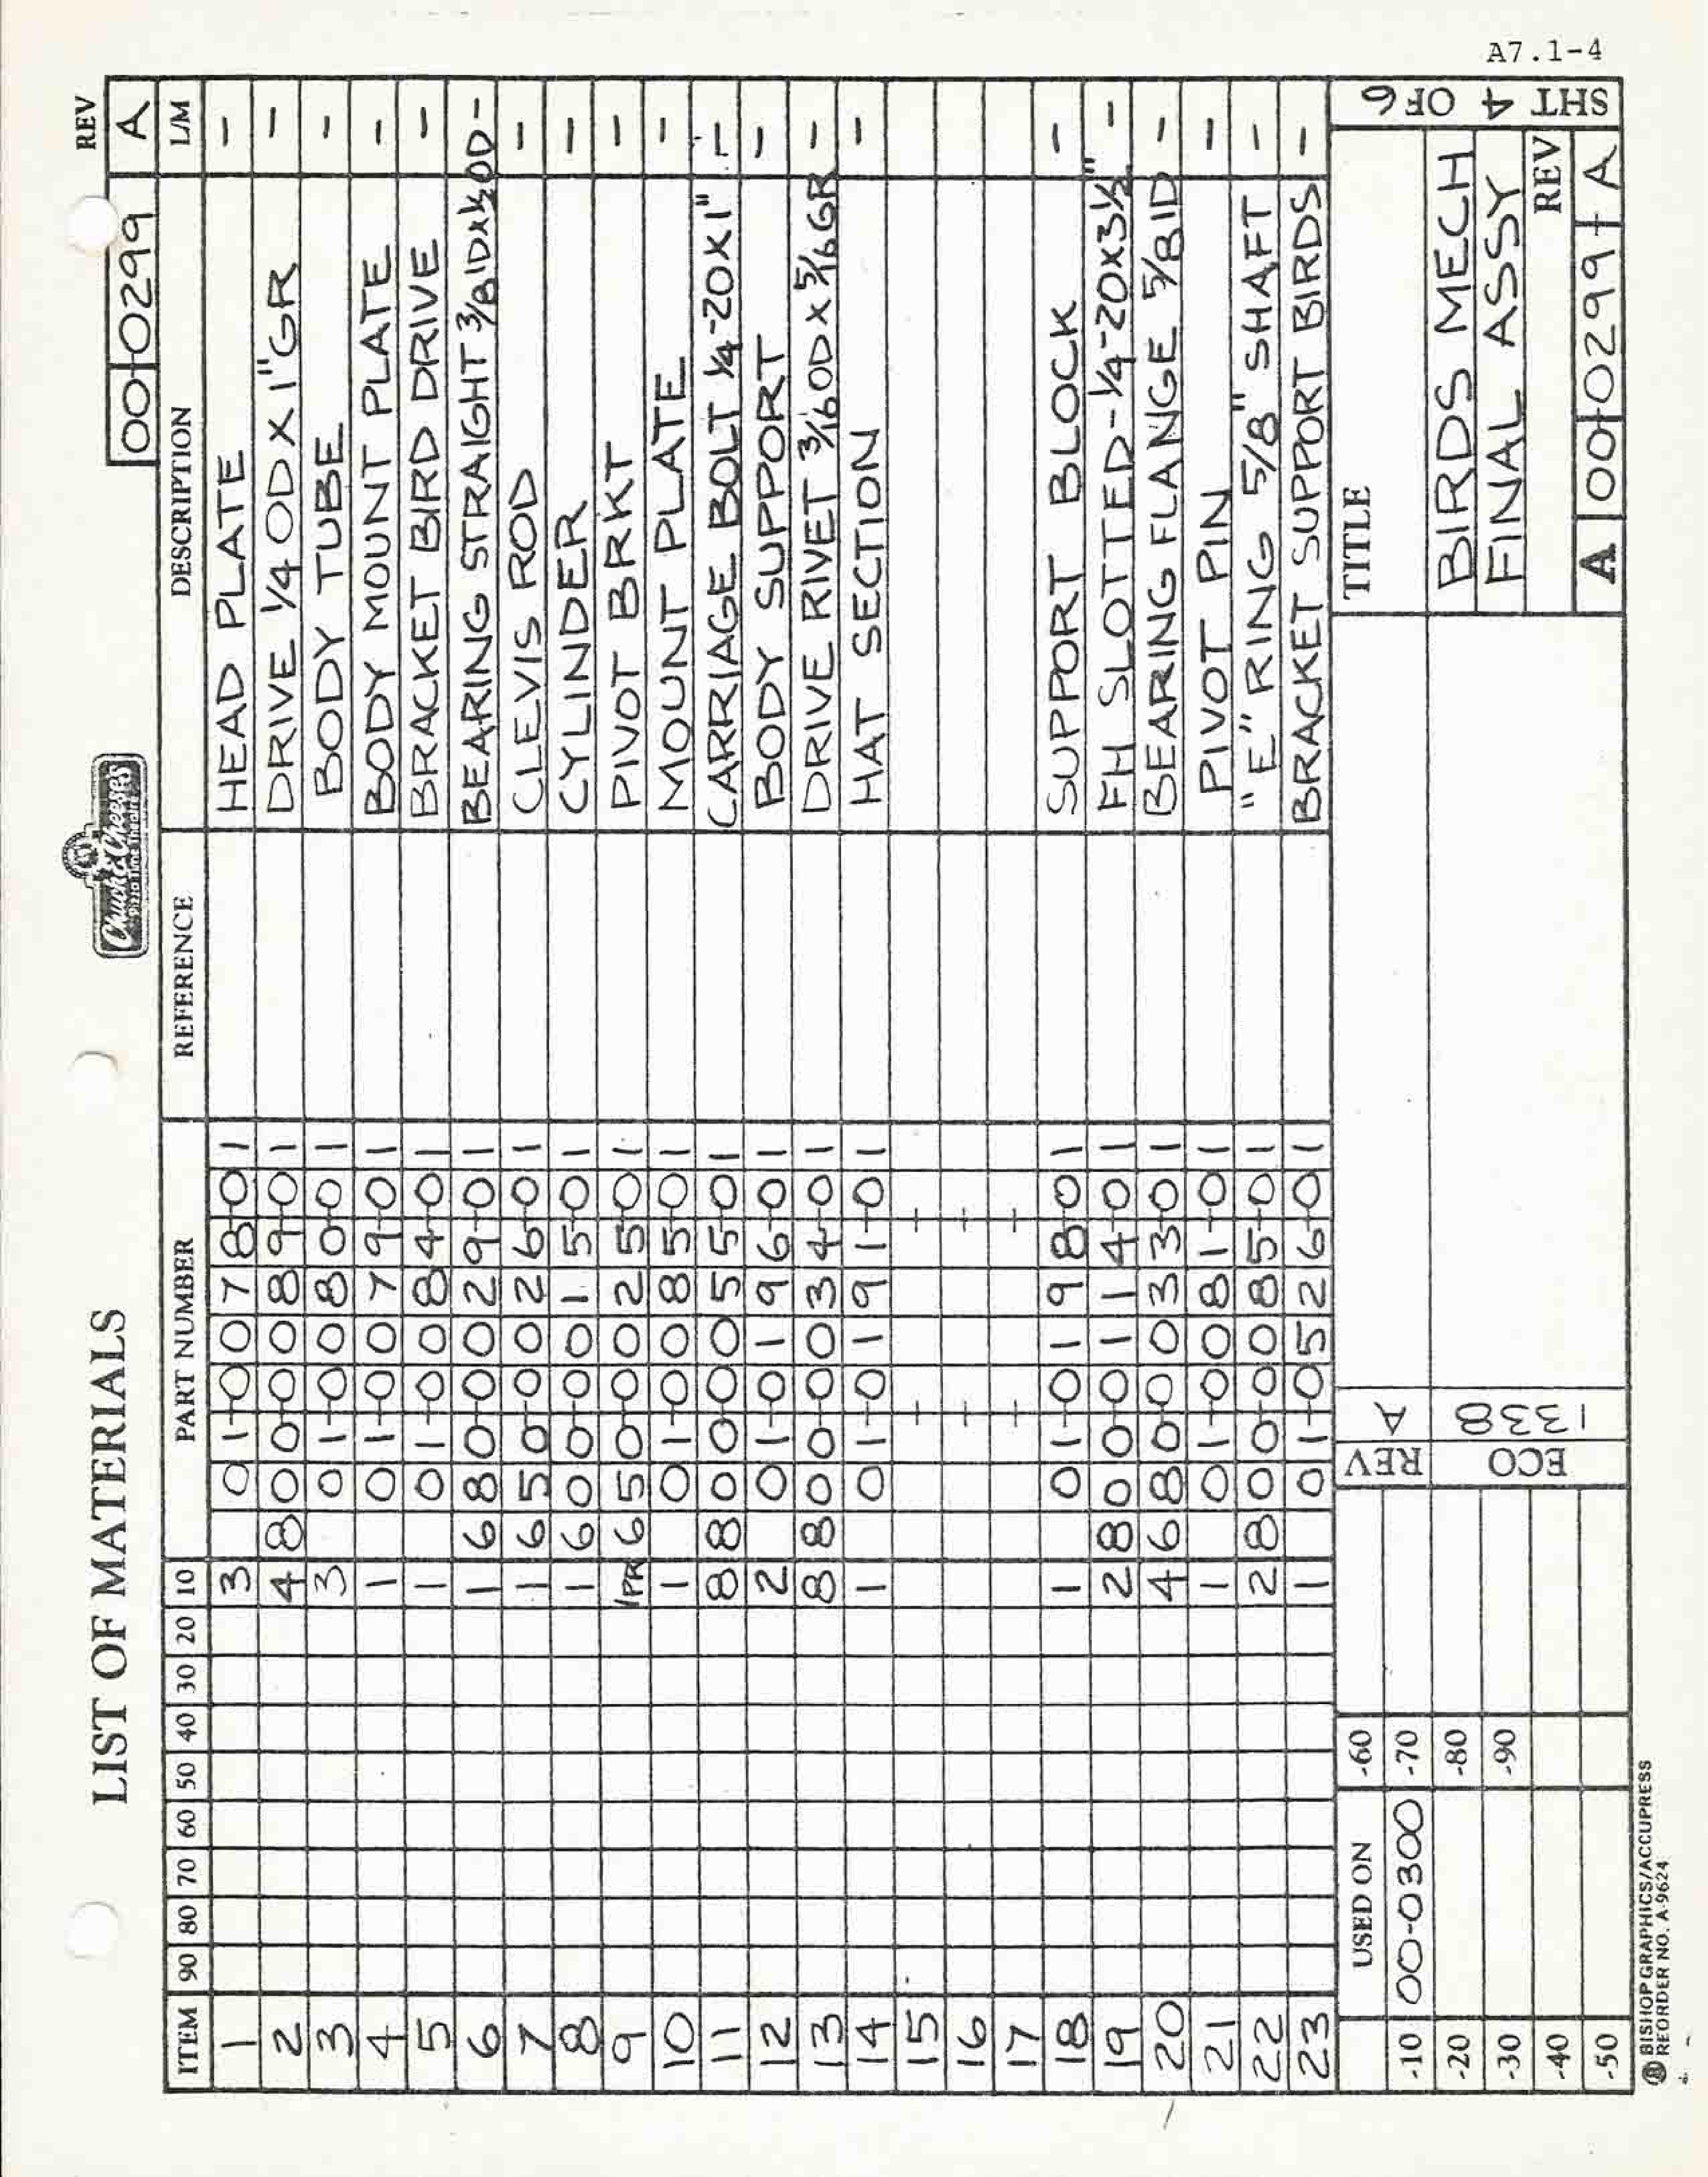 A7.1-4
LIST OF MATERIALS
Chuck E. Cheese's
Pizza Time Theatre
REV
00-0299 A
ITEM 90 80 70 60 50 40 30 20 10 PART NUMBER REFERENCE DESCRIPTION L/M
1 3 01-0078-01 HEAD PLATE -
2 4 800-0089-01 DRIVE 1/4 OD X 1" GR -
3 3 01-0080-01 BODY TUBE -
4 1 01-0079-01 BODY MOUNT PLATE -
5 1 01-0084-01 BRACKET BIRD DRIVE -
6 1 680-0029-01 BEARING STRAIGHT 3/8 ID x 1/2 OD -
7 1 650-0026-01 CLEVIS ROD -
8 1 600-0015-01 CYLINDER -
9 1PR 650-0025-01 PIVOT BRKT -
10 1 01-0085-01 MOUNT PLATE -
11 8 800-0055-01 CARRIAGE BOLT 1/4-20X1" -
12 2 01-0196-01 BODY SUPPORT -
13 8 800-0034-01 DRIVE RIVET 3/16 OD X 5/16 GR -
14 1 01-0191-01 HAT SECTION -
15
16
17
18 1 01-0198-01 SUPPORT BLOCK -
19 2 800-0114-01 FH SLOTTED-1/4-20X3 1/2" -
20 4 680-0033-01 BEARING FLANGE 5/8 ID -
21 1 01-0081-01 PIVOT PIN -
22 2 800-0085-01 "E" RING 5/8" SHAFT -
23 1 01-0526-01 BRACKET SUPPORT BIRDS -
USED ON -60
-10 00-0300 -70
-20 -80
-30 -90
-40
-50
REV A
ECO 1338
TITLE
BIRDS MECH
FINAL ASSY
REV
A 00-0299- A
SHT 4 OF 6
BISHOP GRAPHICS/ACCUPRESS
REORDER NO. A-9624